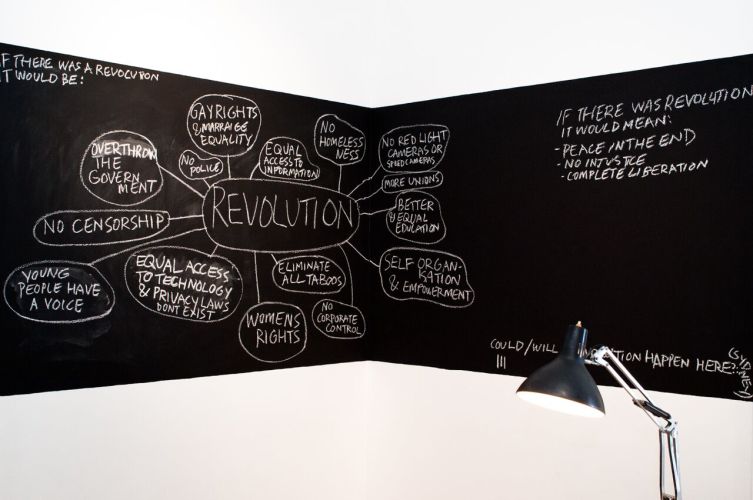 IF THERE WAS A REVOLUTION
IT WOULD BE:
GAY RIGHTS
& MARRAIGE
EQUALITY
NO
HOMELESS
NESS
NO RED LIGHT
CAMERAS OR
SPEED CAMERAS
OVERTHROW
THE
GOVERN
MENT
NO
POLICE
EQUAL
ACCESS TO
INFORMATION
MORE UNIONS
REVOLUTION
BETTER
& EQUAL
EDUCATION
NO CENSORSHIP
YOUNG
PEOPLE HAVE
A VOICE
EQUAL ACCESS
TO TECHNOLOGY
& PRIVACY LAWS
DONT EXIST
ELIMINATE
ALL TABOOS
SELF ORGAN-
ISATION
& EMPOWERMENT
WOMENS
RIGHTS
NO
CORPORATE
CONTROL
IF THERE WAS REVOLUTION
IT WOULD MEAN:
- PEACE IN THE END
- NO INJUSTICE
- COMPLETE LIBERATION
COULD/WILL HAPPEN HERE?